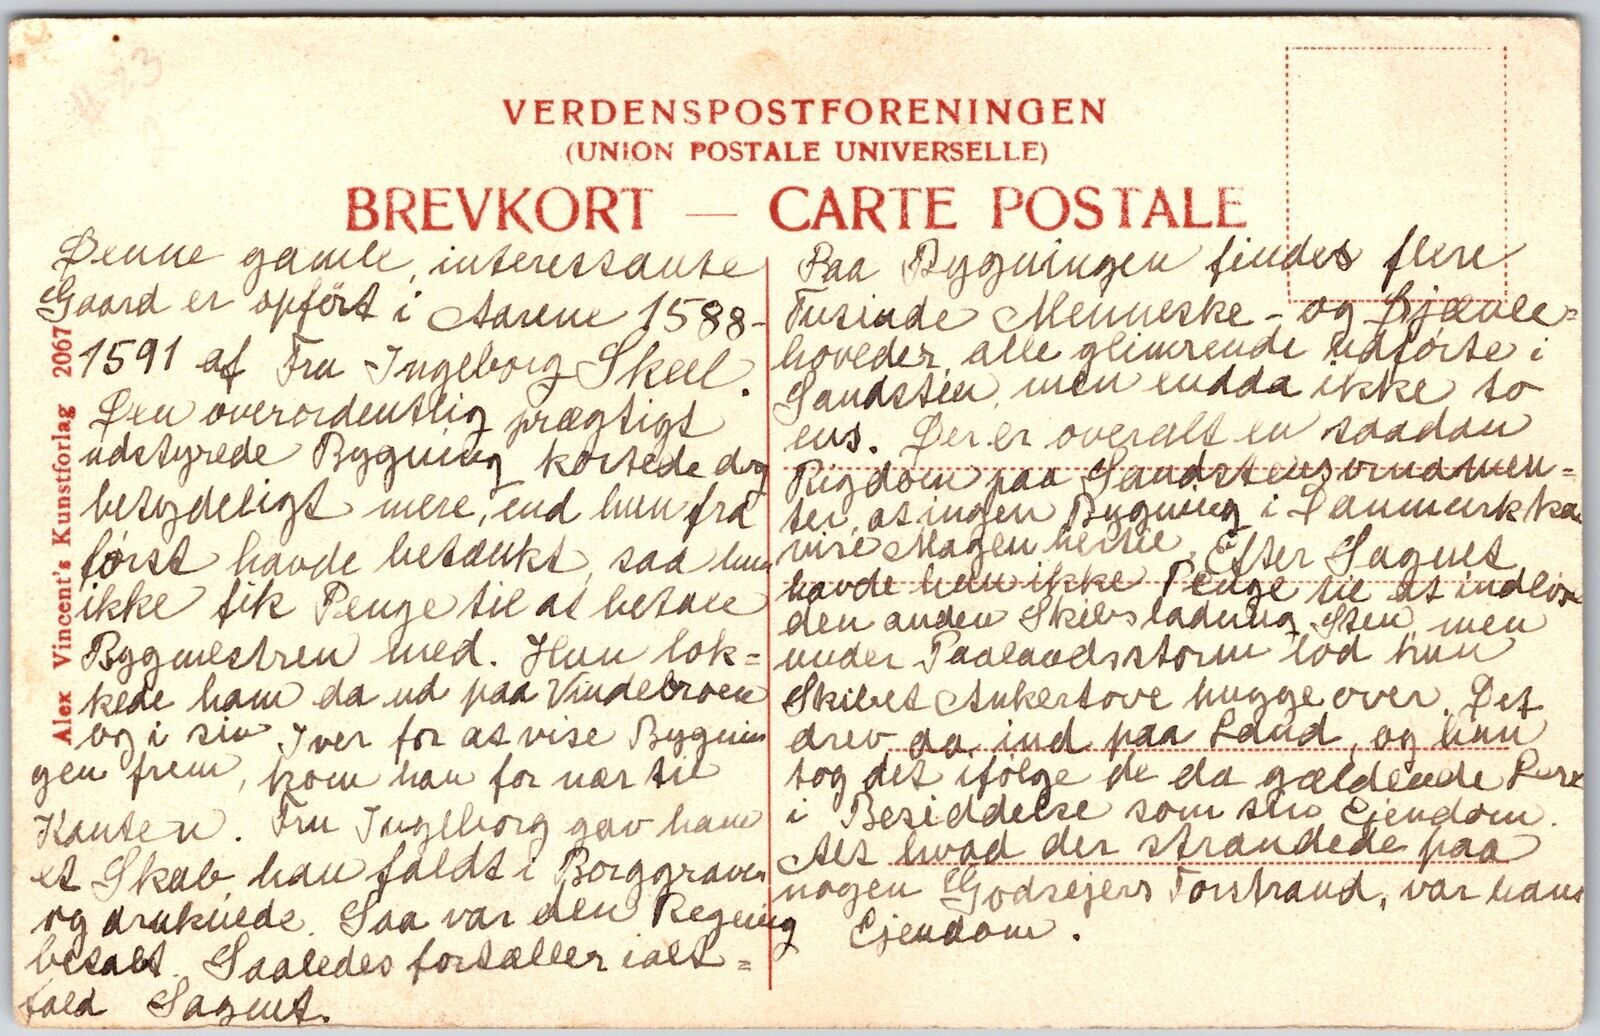 4-23
VERDENSPOSTFORENINGEN
(UNION POSTALE UNIVERSELLE)
BREVKORT — CARTE POSTALE
Alex Vincent's Kunstforlag 2067
Denne gamle, interessante
Gaard er opført i Aarene 1588-
1591 af Fru Ingeborg Skeel.
Den overordentlig prægtigt
udstyrede Bygning kostede dog
betydeligt mere, end hun fra
først havde betænkt, saa hun
ikke fik Penge til at betale
Bygmestren med. Hun lok=
kede ham da ud paa Vindebroen
og i sin Iver for at vise Bygnin
gen frem, kom han for nær til
Kanten. Fru Ingeborg gav ham
et Skub, han faldt i Borggraven
og druknede. Saa var den Regning
betalt. Saaledes fortæller ialt=
fald Sagnet.
Paa Bygningen findes flere
Tusinde Menneske- og Djævle=
hoveder, alle glimrende udførte i
Sandsten, men endda ikke to
ens. Der er overalt en saadan
Rigdom paa Sandstensornamen=
ter, at ingen Bygning i Danmark kan
vise Magen hertil. Efter Sagnet
havde hun ikke Penge til at indløse
den anden Skibsladning Sten, men
under Paalandsstorm lod hun
Skibet Ankertove hugge over. Det
drev da ind paa Land, og hun
tog det ifølge de da gældende Love
i Besiddelse som sin Ejendom.
Alt hvad der strandede paa
nogen Godsejers Forstrand, var hans
Ejendom.